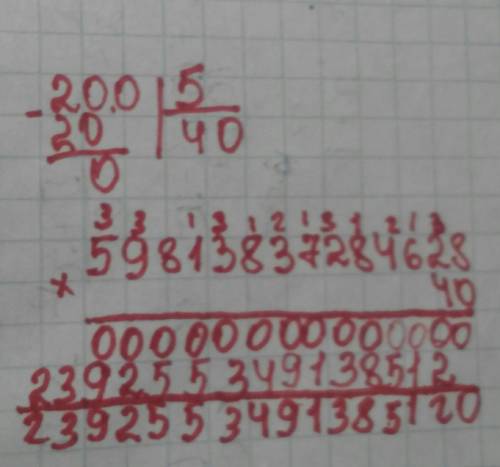 - 20.0 | 5
20 | 40
0
3 3 1 3 1 2 1 3 1 2 1 3
59813837284628
× 40
00000000000000
239255349138512
2392553491385120